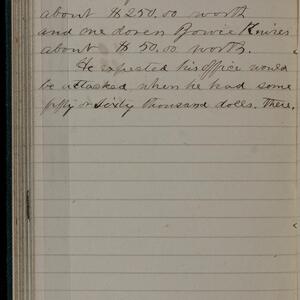 about $250.00 worth
and one dozen Bowie Knives
about $50.00 worth.
He expected his office would
be attacked when he had some
fifty or sixty thousand dolls. There,